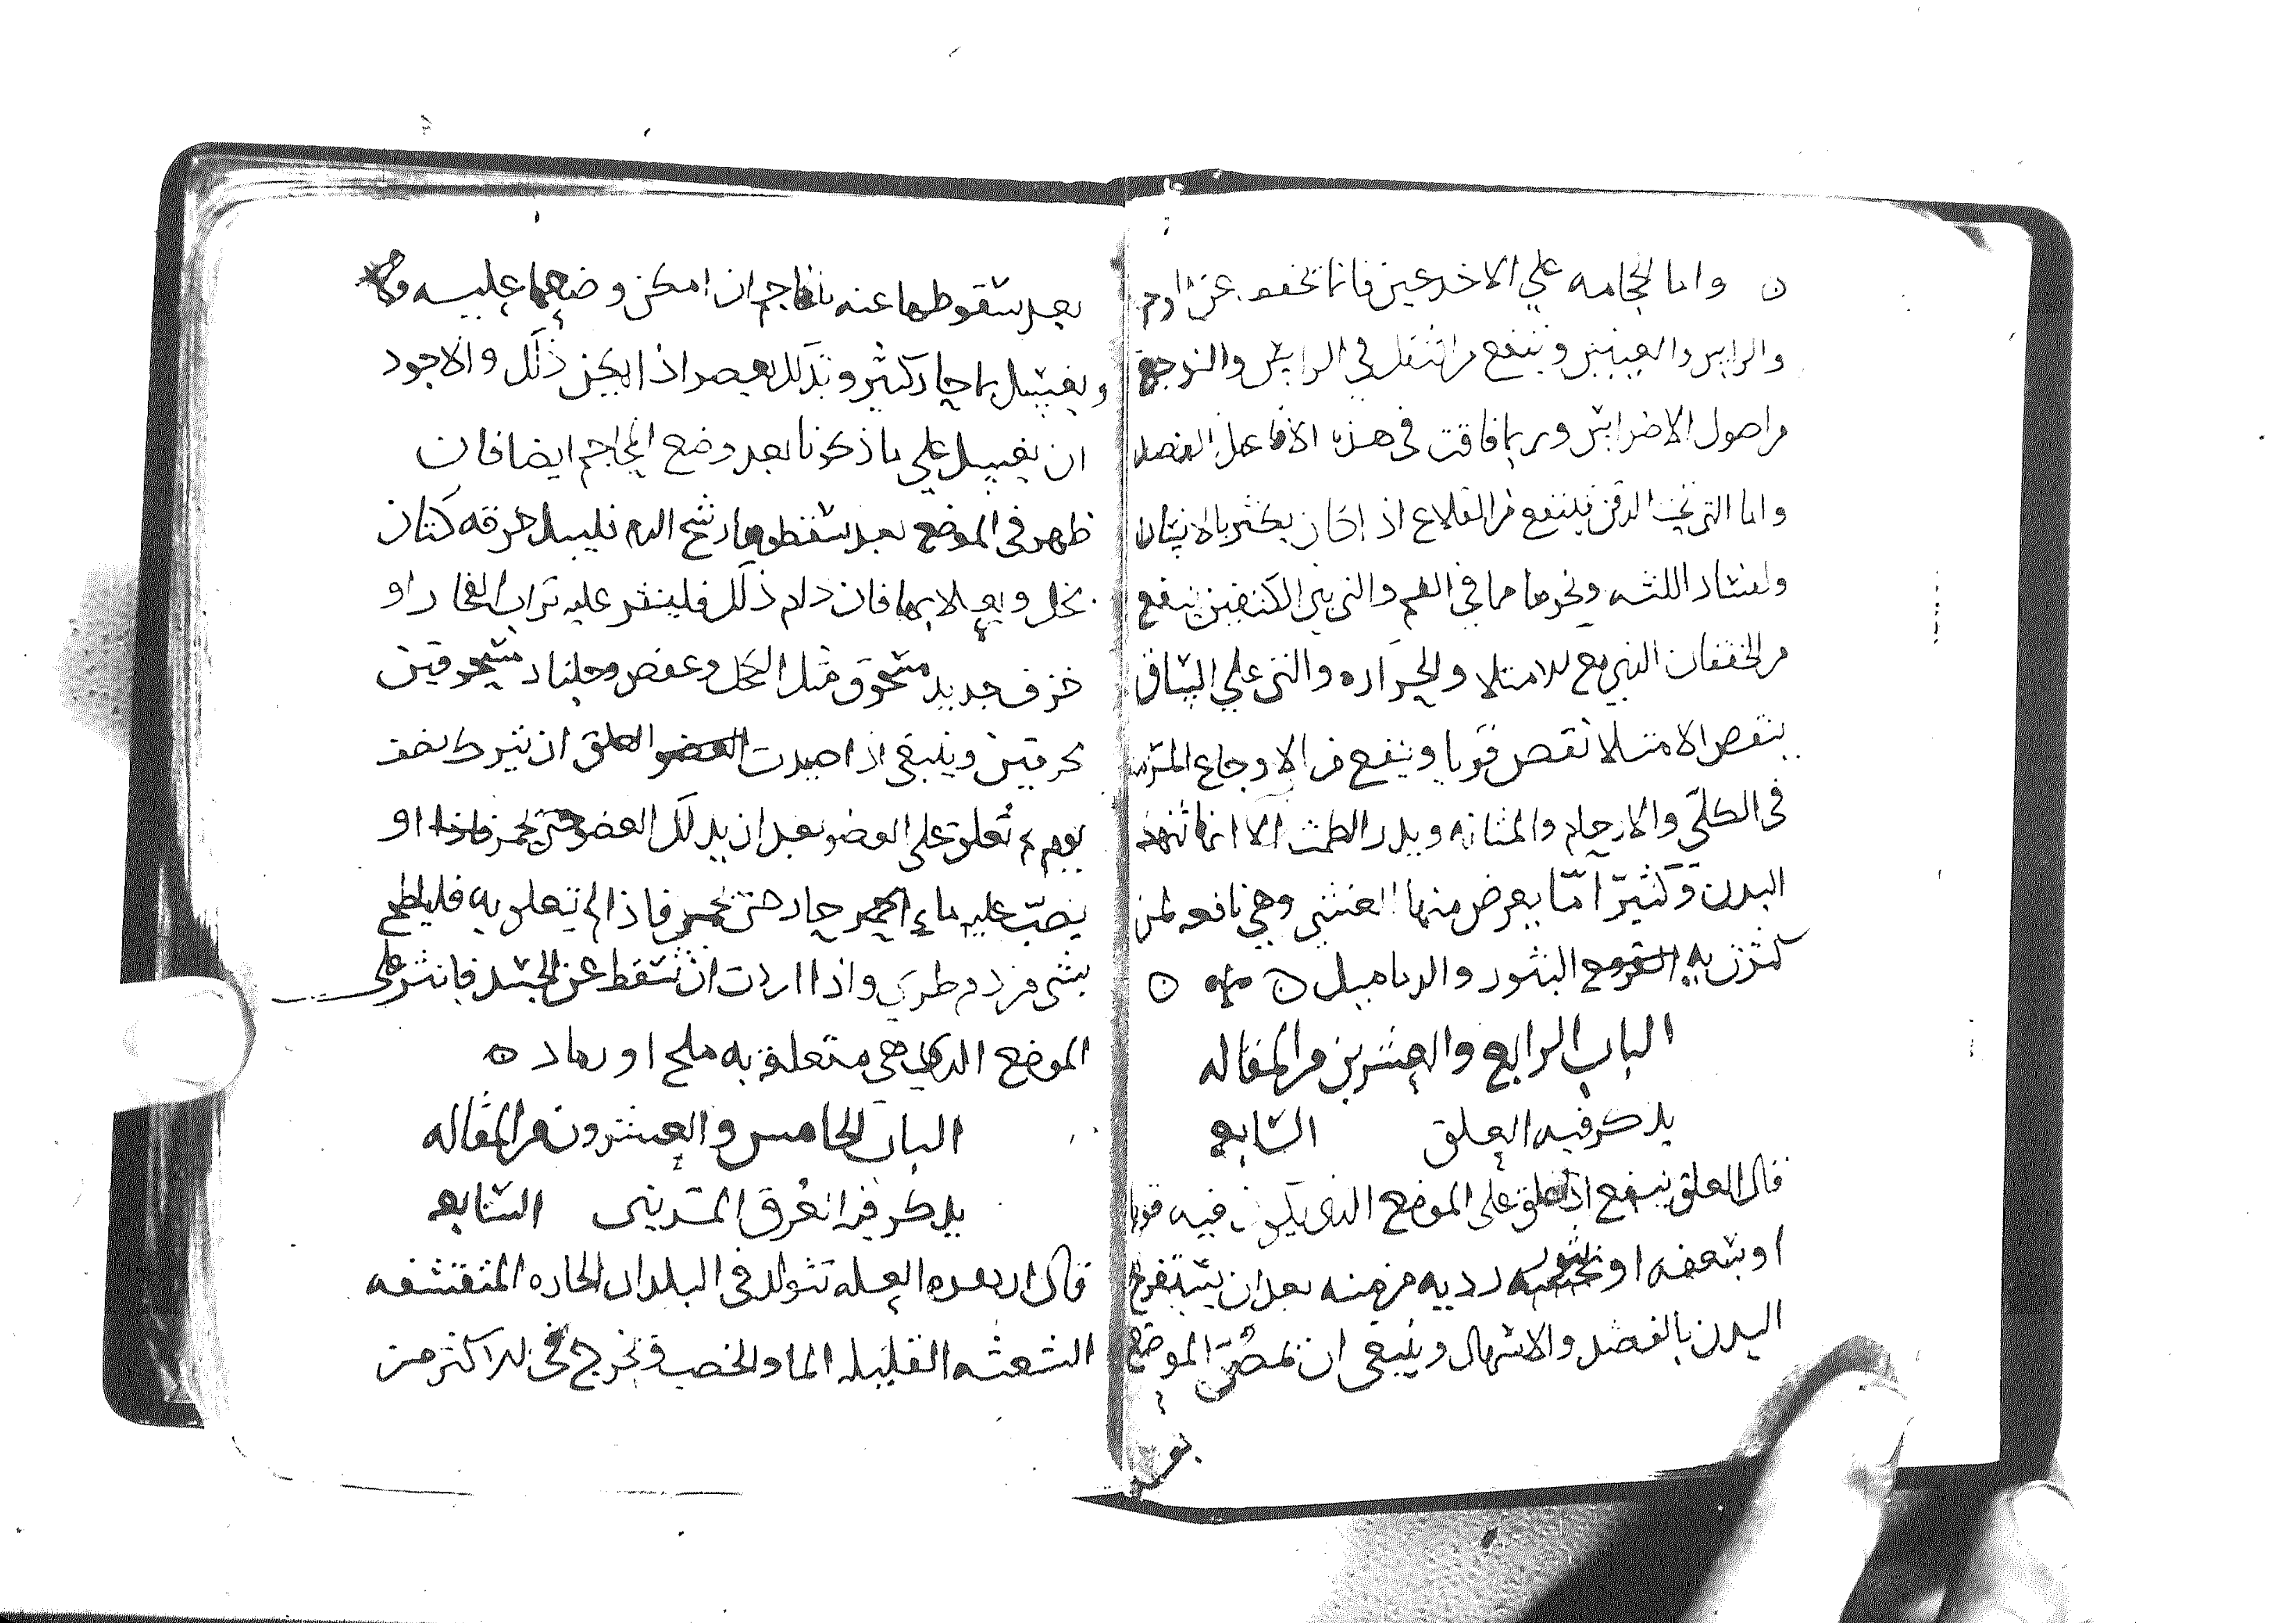 واما الحجامه علي الاخدعين فانها تخفف عن
والراس والعينين وينفع من الثقل في الراس والوجع
من اصول الاضراس وربما قامت في هذه الافاعيل الفصد
واما التي تحت الدقن فينتفع من القلاع اذ اكان يكثر بالانسان
وفساد اللثه ونحوها مما في الفم والتي بين الكتفين ينفع
من الخفقان الذي مع الامتلا والحراره والتي علي الساق
ينقص الامتلا نقص قويا وينفع من الاوجاع المزمنه
في الكلي والارحام والمثانه ويدر الطمث الا انها تنهك
البدن وكثيرا ما يعرض منها الغشي وهي نافعه لمن
كثرت به البثور والدماميل
الباب الرابع والعشرين من المقاله
يذكر فيه العلق السابعه
قال العلق ينفع اذا علق علي الموضع الذي يكون فيه قوبا
او سعفه او بثور رديه مزمنه بعد ان يستفرغ
البدن بالفصد والاسهال وينبغي ان تمص الموضع
بعد
بعد سقوطها عنه بالمحاجم ان امكن وضعها عليه
ويغسل بما حار كثير ويدلك ويعصر اذا لم يكن ذلك والاجود
ان يغسل علي ما ذكرنا بعد وضع المحاجم ايضا فان
ظهر في الموضع بعد سقطوها رشح الدم فليبل خرقه كتان
بخل ويعلا بها فان دام ذلك فلينثر عليه تراب الفخار او
خزف جديد مسحوق مثل الكحل وعفص وجلنار مسحوقين
محرقين وينبغي اذا صيدت العلق ان تترك نصف
يوم ثم تعلق علي العضو بعد ان يدلك العضو حتي يحمر او
يصب عليه ماء حار حتي يحمر فاذا لم تعلق به فليلطخ
بشي من دم طري واذا اردت ان تسقط عن الجسد فانثر علي
الموضع الذي هي متعلقة به ملح او رماد
الباب الخامس والعشرون من المقاله
يذكر فيه العرق المديني السابعه
قال ان هذه العله تتولد في البلدان الحاره المتقشفه
الشعثه القليله الما والخصب وتخرج في الاكثر من